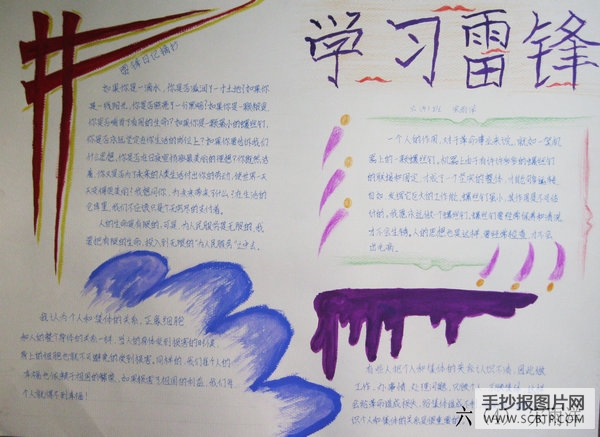 学习雷锋
雷锋日记摘抄
如果你是一滴水,你是否滋润了一寸土地?如果你
是一线阳光,你是否照亮了一分黑暗?如果你是一颗粮食,
你是否哺育了有用的生命?如果你是一颗最小的螺丝钉,
你是否永远坚守在你生活的岗位上?如果你要告诉我们
什么思想,你是否在日夜宣扬那最美丽的理想?你既然活
着,你又是否为了未来的人类生活付出你的劳动,使世界一天
天变得更美丽?我想问你,为未来带来了什么?在生活的
仓库里,我们不应该只是个无穷尽的支付者。
人的生命是有限的,可是,为人民服务是无限的,我
要把有限的生命,投入到无限的"为人民服务"之中去。
我认为个人和集体的关系,正象细胞
和人的整个身体的关系一样,当人的身体受到损害的时候,
身上的细胞也就不可避免的受到损害,同样的,我们每个人的
幸福也依赖于祖国的繁荣,如果损害了祖国的利益,我们每
个人就得不到幸福!
一个人的作用,对于革命事业来说,就如一架机
器上的一颗螺丝钉。机器上由于有许许多多的螺丝钉
的联接和固定,才成了一个坚实的整体,才能够运转
自如,发挥它巨大的工作能,螺丝钉虽小,其作用是不可估
计的,我愿永远做一个螺丝钉。螺丝钉要经常保养和清洗
才不会生锈。人的思想也是这样,要经常检查,才不会
出毛病。
有些人把个人和集体的关系认识不清,因此做
工作、办事情、处理问题,只顾个人
会给革命造成损失,给集体造成
识个人和集体的关系是很重要的
手抄报图片网
www.SCBTP.COM